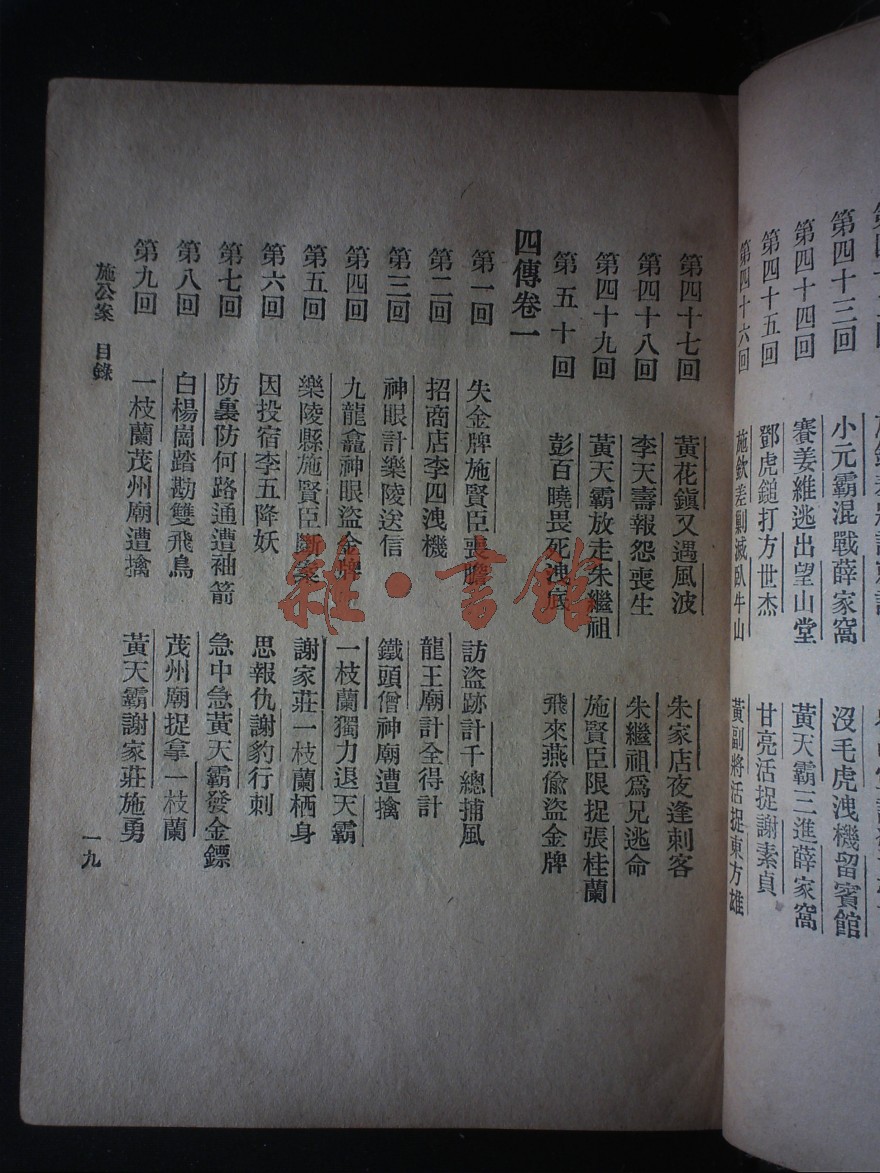 第四十三回　小元霸混戰薛家窩　沒毛虎洩機留賓館
第四十四回　賽姜維逃出望山堂　黃天霸三進薛家窩
第四十五回　鄧虎鎚打方世杰　甘亮活捉謝素貞
第四十六回　施欽差剿滅臥牛山　黃副將活捉東方雄
第四十七回　黃花鎮又遇風波　朱家店夜逢刺客
第四十八回　李天壽報怨喪生　朱繼祖爲兄逃命
第四十九回　黃天霸放走朱繼祖　施賢臣限捉張桂蘭
第五十回　彭百曉畏死洩底　飛來燕偷盜金牌
四傳卷一
第一回　失金牌施賢臣喪膽　訪盜跡計千總捕風
第二回　招商店李四洩機　龍王廟計全得計
第三回　神眼計樂陵送信　鐵頭僧神廟遭擒
第四回　九龍龕神眼盜金牌　一枝蘭獨力退天霸
第五回　樂陵縣施賢臣斷案　謝家莊一枝蘭栖身
第六回　因投宿李五降妖　思報仇謝豹行刺
第七回　防裏防何路通遭袖箭　急中急黃天霸發金鏢
第八回　白楊崗踏勘雙飛鳥　茂州廟捉拿一枝蘭
第九回　一枝蘭茂州廟遭擒　黃天霸謝家莊施勇
施公案　目錄
一九
雜·書館